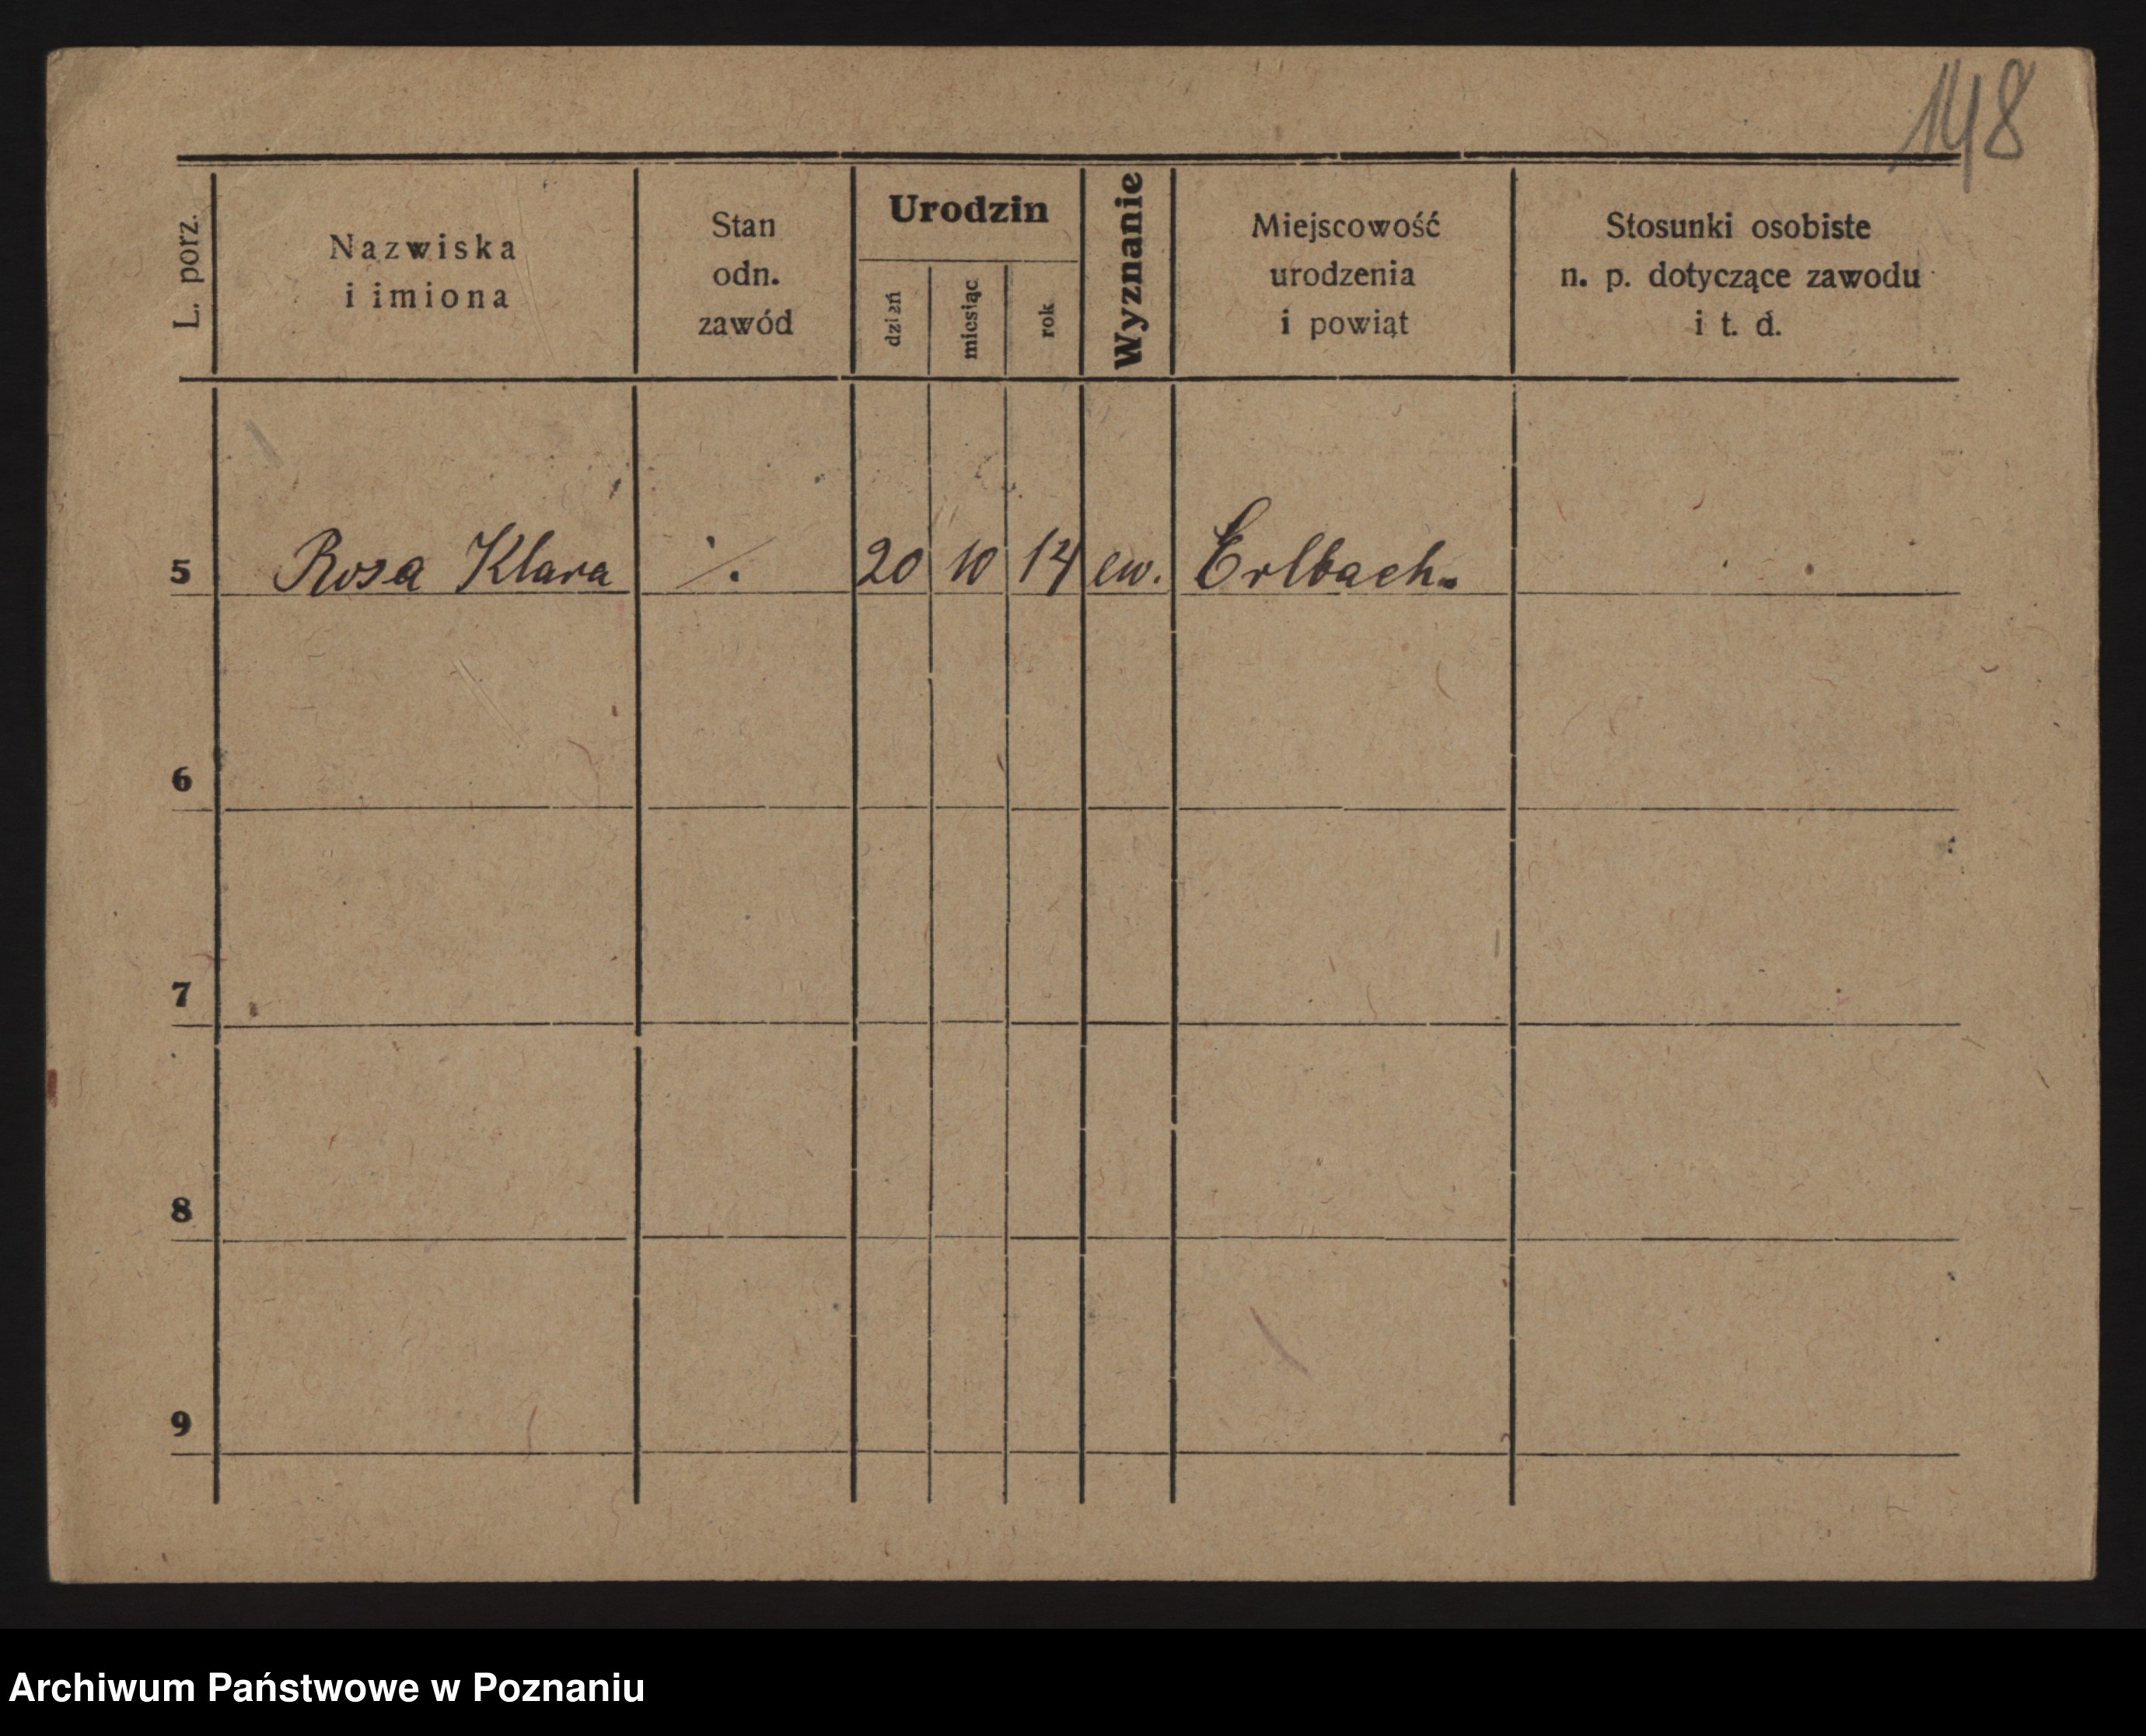 148
L. porz.
Nazwiska
i imiona
Stan
odn.
zawód
Urodzin
dzień
miesiąc
rok
Wyznanie
Miejscowość
urodzenia
i powiąt
Stosunki osobiste
n. p. dotyczące zawodu
i t. d.
5 Rosa Klara ⁒ 20 10 14 ew. Erlbach.
6
7
8
9
Archiwum Państwowe w Poznaniu